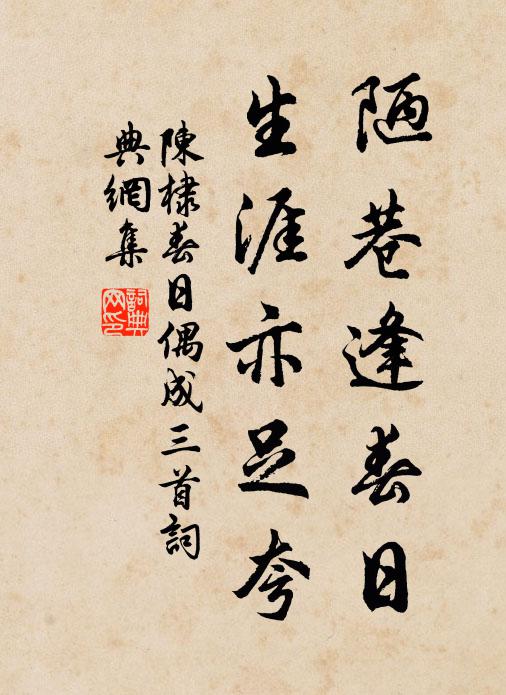 陋巷逢春日
生涯亦足夸
陳棣春日偶成三首詞
典網集
詞典
网印